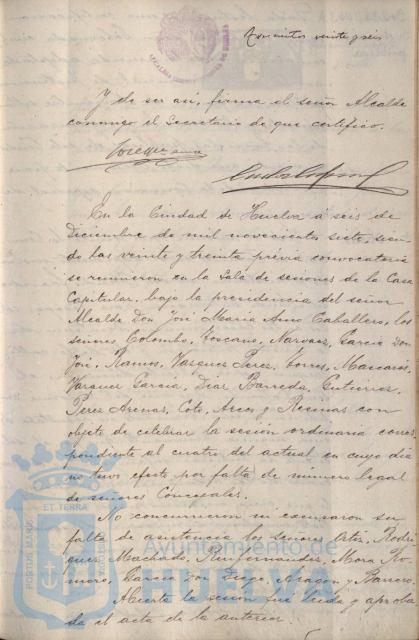 Doscientos veinte y seis
Y de ser así, firma el señor Alcalde
conmigo el Secretario de que certifico.
En la Ciudad de Huelva á seis de
Diciembre de mil novecientos siete, sien-
do las veinte y treinta previa convocatoria
se reunieron en la Sala de sesiones de la Casa
Capitular, bajo la presidencia del señor
Alcalde Don José Maria Amo Caballero, los
señores Colombo, Toscano, Narvaez, Garcia Don
José, Ramos, Vazquez Perez, Torres, Mascarós,
Vazquez Garcia, Diaz Barreda, Gutierrez,
Perez Arenas, Coto, Arcos y Recinas con
objeto de celebrar la sesión ordinaria corres-
pondiente al cuatro del actual en cuyo dia
no tuvo efecto por falta de número legal
de señores Concejales.
No concurrieron ni escusaron su
falta de asistencia los señores Ortiz, Rodri-
guez Machado, Mora Ro-
mero, Garcia Don Diego, Aragon y Barrero.
Abierta la sesión fué leida y aproba-
da el acta de la anterior.
PORTUS MARIS
ET TERRA
Ayuntamiento de
HUELVA